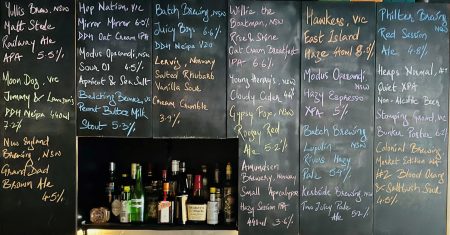 Yullis Brew, NSW
Matt Stode
Railway Ale
APA 5.5%
Moon Dog, VIC
Jummy Dr Lemmons
DDH Neipa 440ml
7.2%
New England
Brewing, NSW
Grand Dad
Brown Ale
4.5%
Hop Nation, VIC
Mirror Mirror 6.5%
DDH Oat Cream IPA
Modus Operandi, NSW
Sour 01 4.5%
Apricot & Sea Salt
Bricklane Brewing, VIC
Peanut Butter Milk
Stout 5.3%
Batch Brewing, NSW
Juicy Boys 6.6%
DDH Neipa V20
Salted Rhubarb
Vanilla Sour
Cream Crumble
3.9%
Willie the
Boatman, NSW
Rise & Shine
Oat Cream Breakfast
IPA 6.6%
Young Henry's, NSW
Cloudy Cider
Gypsy Fox, NSW
Red
Ale 5.2%
Amundsen
Brewery, Norway
Small Apocalypse
Hazy Session IPA
440ml 3.6%
Hawkers, VIC
East Island
Haze 440ml 8.5%
Modus Operandi
NSW
Hazy Espresso
XPA 5%
Batch Brewing
Lupulin NSW
Rivers Hazy
Pale 5.2%
Kerbside Brewing, NSW
Two Juicy Pale
Ale 5.2%
Philter Brewing
Red Session
Ale 4.8%
Heaps Normal
Quiet XPA
Non-Alcoholic Beer
Stomping Ground, VIC
Bunker Porter 6.1%
Colonial Brewing
Market Kitchen
#2 Blood Orange
& Saltbush Sour
4.5%